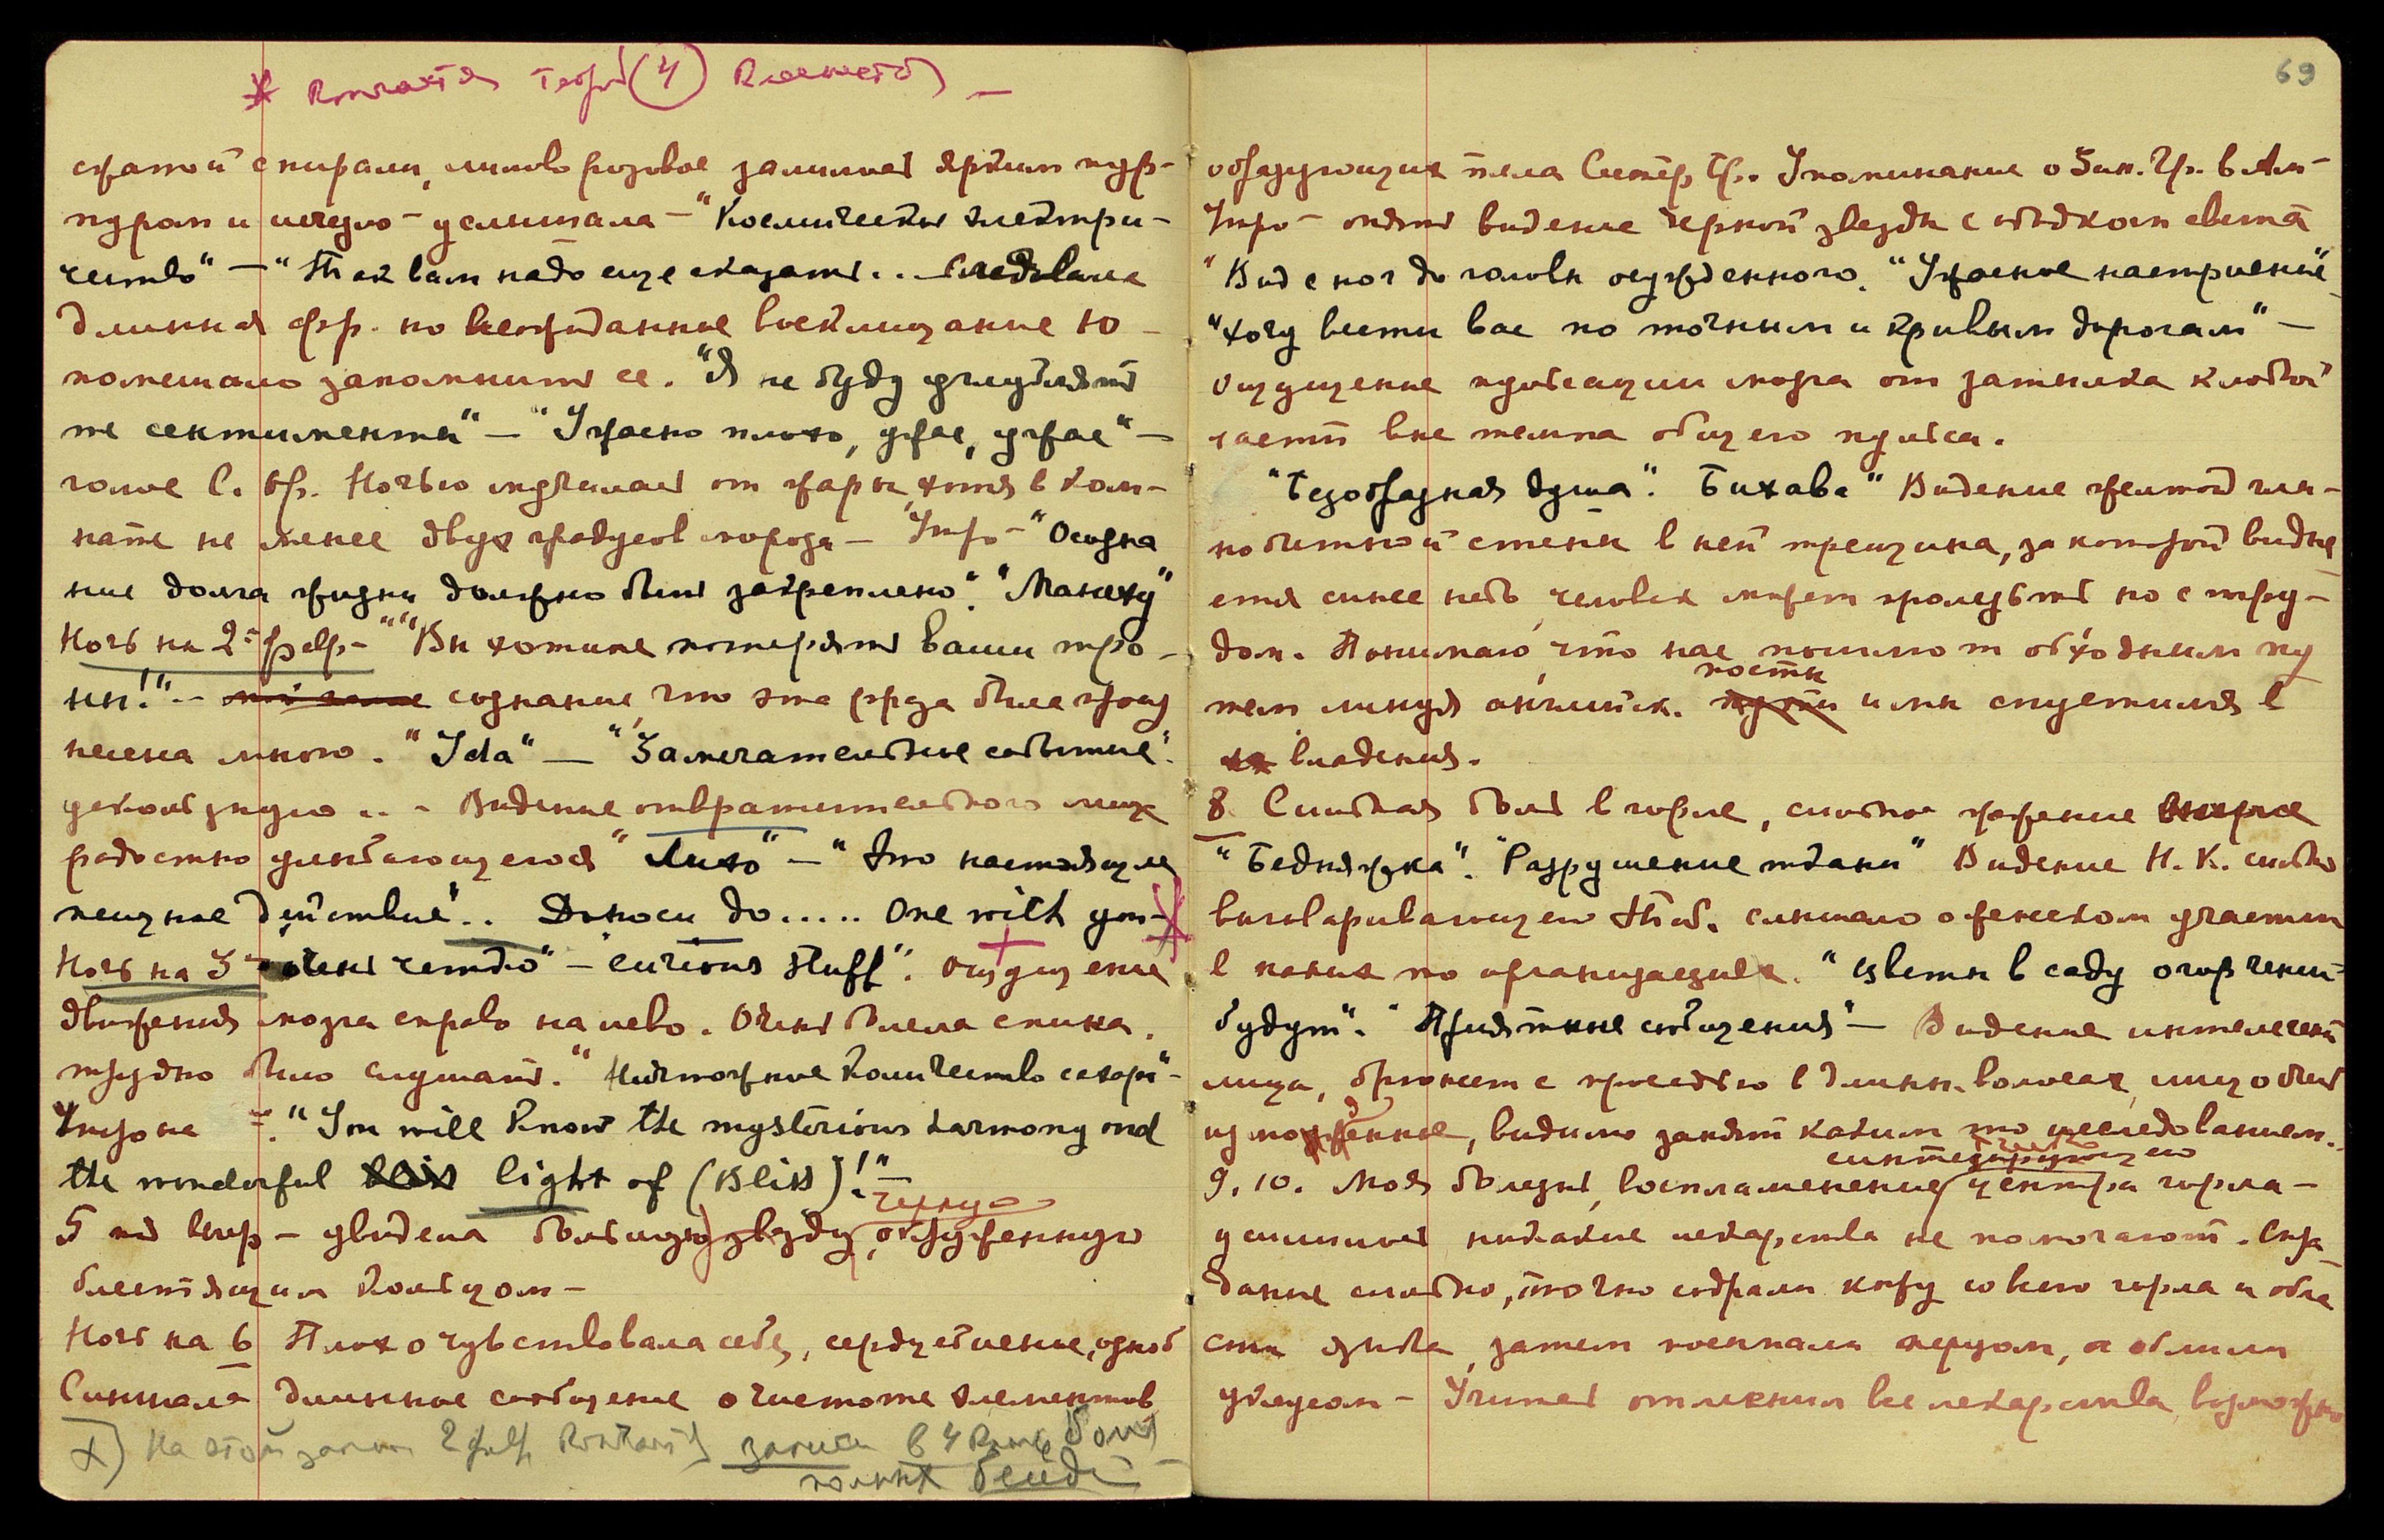 сжатой спирали, лилово розовое залилось ярким пур-
пуром и исчезло – услышала – "Космическое электри-
чество" – "Так вам надо еще сказать... Следовала
длинная фр. но неожиданное восклицание Ю –
помешало запомнить ее. "Я не буду углублять
те сентименты" – "Ужасно плохо, ужас, ужас" –
голос С. Бр. Ночью мучилась от жары хотя в ком-
нате не менее двух градусов мороза – Утро – "Осозна
ние долга жизни должно быть закреплено". "Манеху"
Ночь на 2е февр – "Вы хотите потерять ваши тро –
ны!" – сознание, что эта фраза была произ
несена мною. "Ida" – "Замечательное событие".
ускользнуло .. – Видение отвратительного лица
радостно улыбающегося "Лихо" – "Это настоящее
мощное действие".. Доноси до ..... One with you –
Ночь на 3е "очень четко" – "curious stuff". Ощущение
движения мозга справо на лево. Очень болела спина,
трудно было слушать. "Ничтожное количество сахара" –
"You will know the mysterious harmony and
the wonderful light of (Bliss)!" –
черную
5 – увидела большую звезду, окруженную
блестящим кольцом –
Ночь на 6 Плохо чувствовала себя, сердцебиение, озноб
Слышала длинное сообщение о чистоте элементов
х) На этой записи 2 февр.
запись в 4
полных
69
образующих тела Сестер Бр. Упоминание о Зин. Гр. в Ам –
Утро – опять видение черной звезды с ободком света
"Вид с ног до головы осужденного. "Ужасное настроение
"Хочу вести вас по точным и кривым дорогам" –
Ощущение пульсации мозга от затылка к лобной
части вне темпа общего пульса.
"Безобразная душа". Бихава" Видение желтой гли-
нобитной стены в ней трещина, за которой видне
ется синее небо, человек может пролезть но с тру –
дом. Понимаю, что нас пошлют обходным пу
посты
тем минуя английск. и мы спустимся в
владения.
8 Сильная боль в горле, сильное жжение
"Бедняжка". "Разрушение ткани" Видение Н. К. сильно
выговаривающего Таб. слышало о женском участии
в каких то организациях. "Цветы в саду огорчений
будут". "Приятные сообщения" – Видение интеллиген
лица, брюнет с проседью в длинн. волосах, лицо было
изможденное, видимо занят каким то исследованием.
синтезирующего
9, 10. Моя болезнь, воспламенение центра горла –
усилилась никакие лекарства не помогают. Стра
дание сильно, точно содрали кожу со всего горла и обла
сти языка, затем посыпали перцом, и облили
уксусом – Учитель отменил все лекарства, возможно